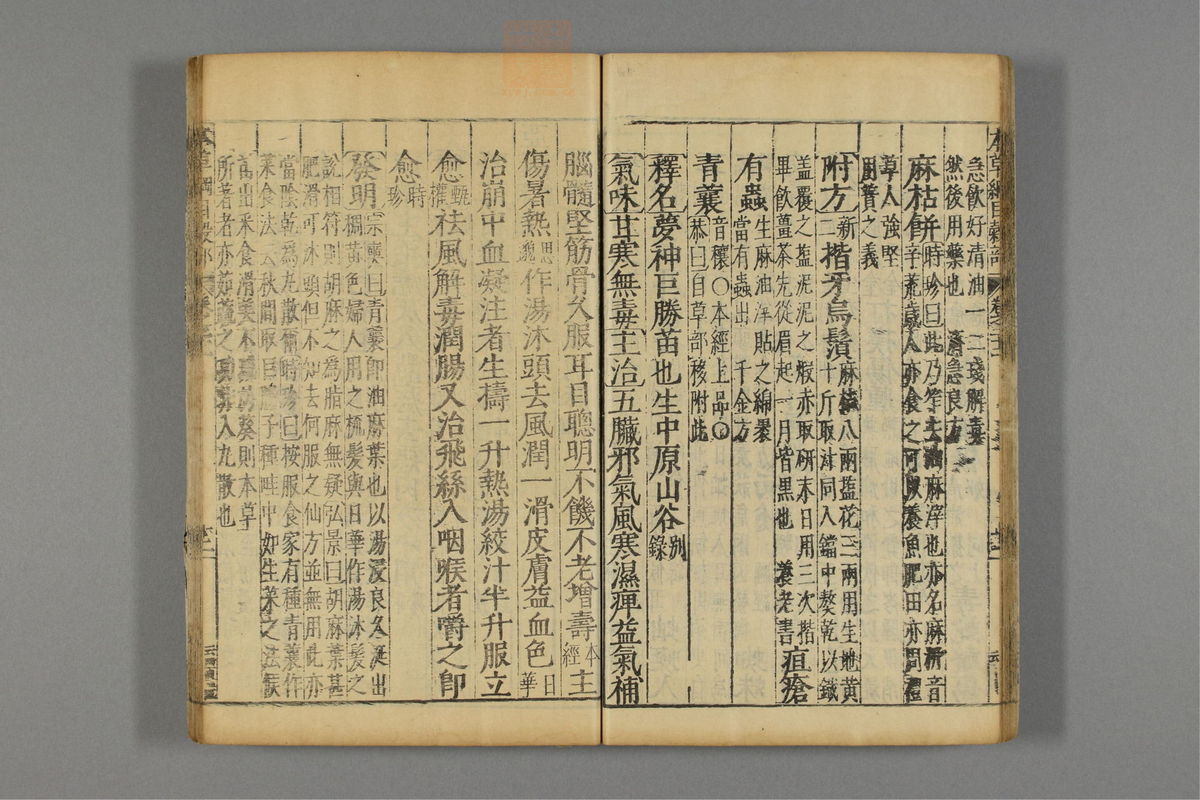 急飲好清油一二琖解毒
然後用藥也 濟急良方
麻枯餅時珍曰此乃笮去油麻滓也亦名麻
音辛荒歲人亦食之可以養魚肥田亦周禮
草人強堅
用蕡之義
附方新二揩牙烏鬚麻枯八兩鹽花三兩用生地黃
十斤取汁同入鐺中熬乾以鐵
蓋覆之鹽泥泥之煆赤取研末日用三次揩
畢飲薑茶先從眉起一月皆黑也 養老書疽瘡
有蟲生麻油滓貼之綿裹
當有蟲出 千金方
青蘘音穰○本經上品○
恭曰自草部移附此
釋名夢神巨勝苗也生中原山谷別錄
氣味甘寒無毒主治五臟邪氣風寒濕痺益氣補
腦髓堅筋骨久服耳目聰明不饑不老增壽本經主
傷暑熱思邈作湯沐頭去風潤髮滑皮膚益血色日華
治崩中血凝注者生擣一升熱湯絞汁半升服立
愈甄權祛風解毒潤腸又治飛絲入咽喉者嚼之即
愈時珍
發明宗奭曰青蘘即油麻葉也以湯浸良久涎出
稠黃色婦人用之梳髮與日華作湯沐髮之
說相符則胡麻之為脂麻無疑弘景曰胡麻葉甚
肥滑可沐頭但不知云何服之仙方並無用此亦
當陰乾為丸散爾時珍曰按服食家有種青蘘作
菜食法云秋間取巨勝子種畦中如生菜之法候
苗出采食滑美不減於葵則本草
所著者亦茹蔬之功非入丸散也